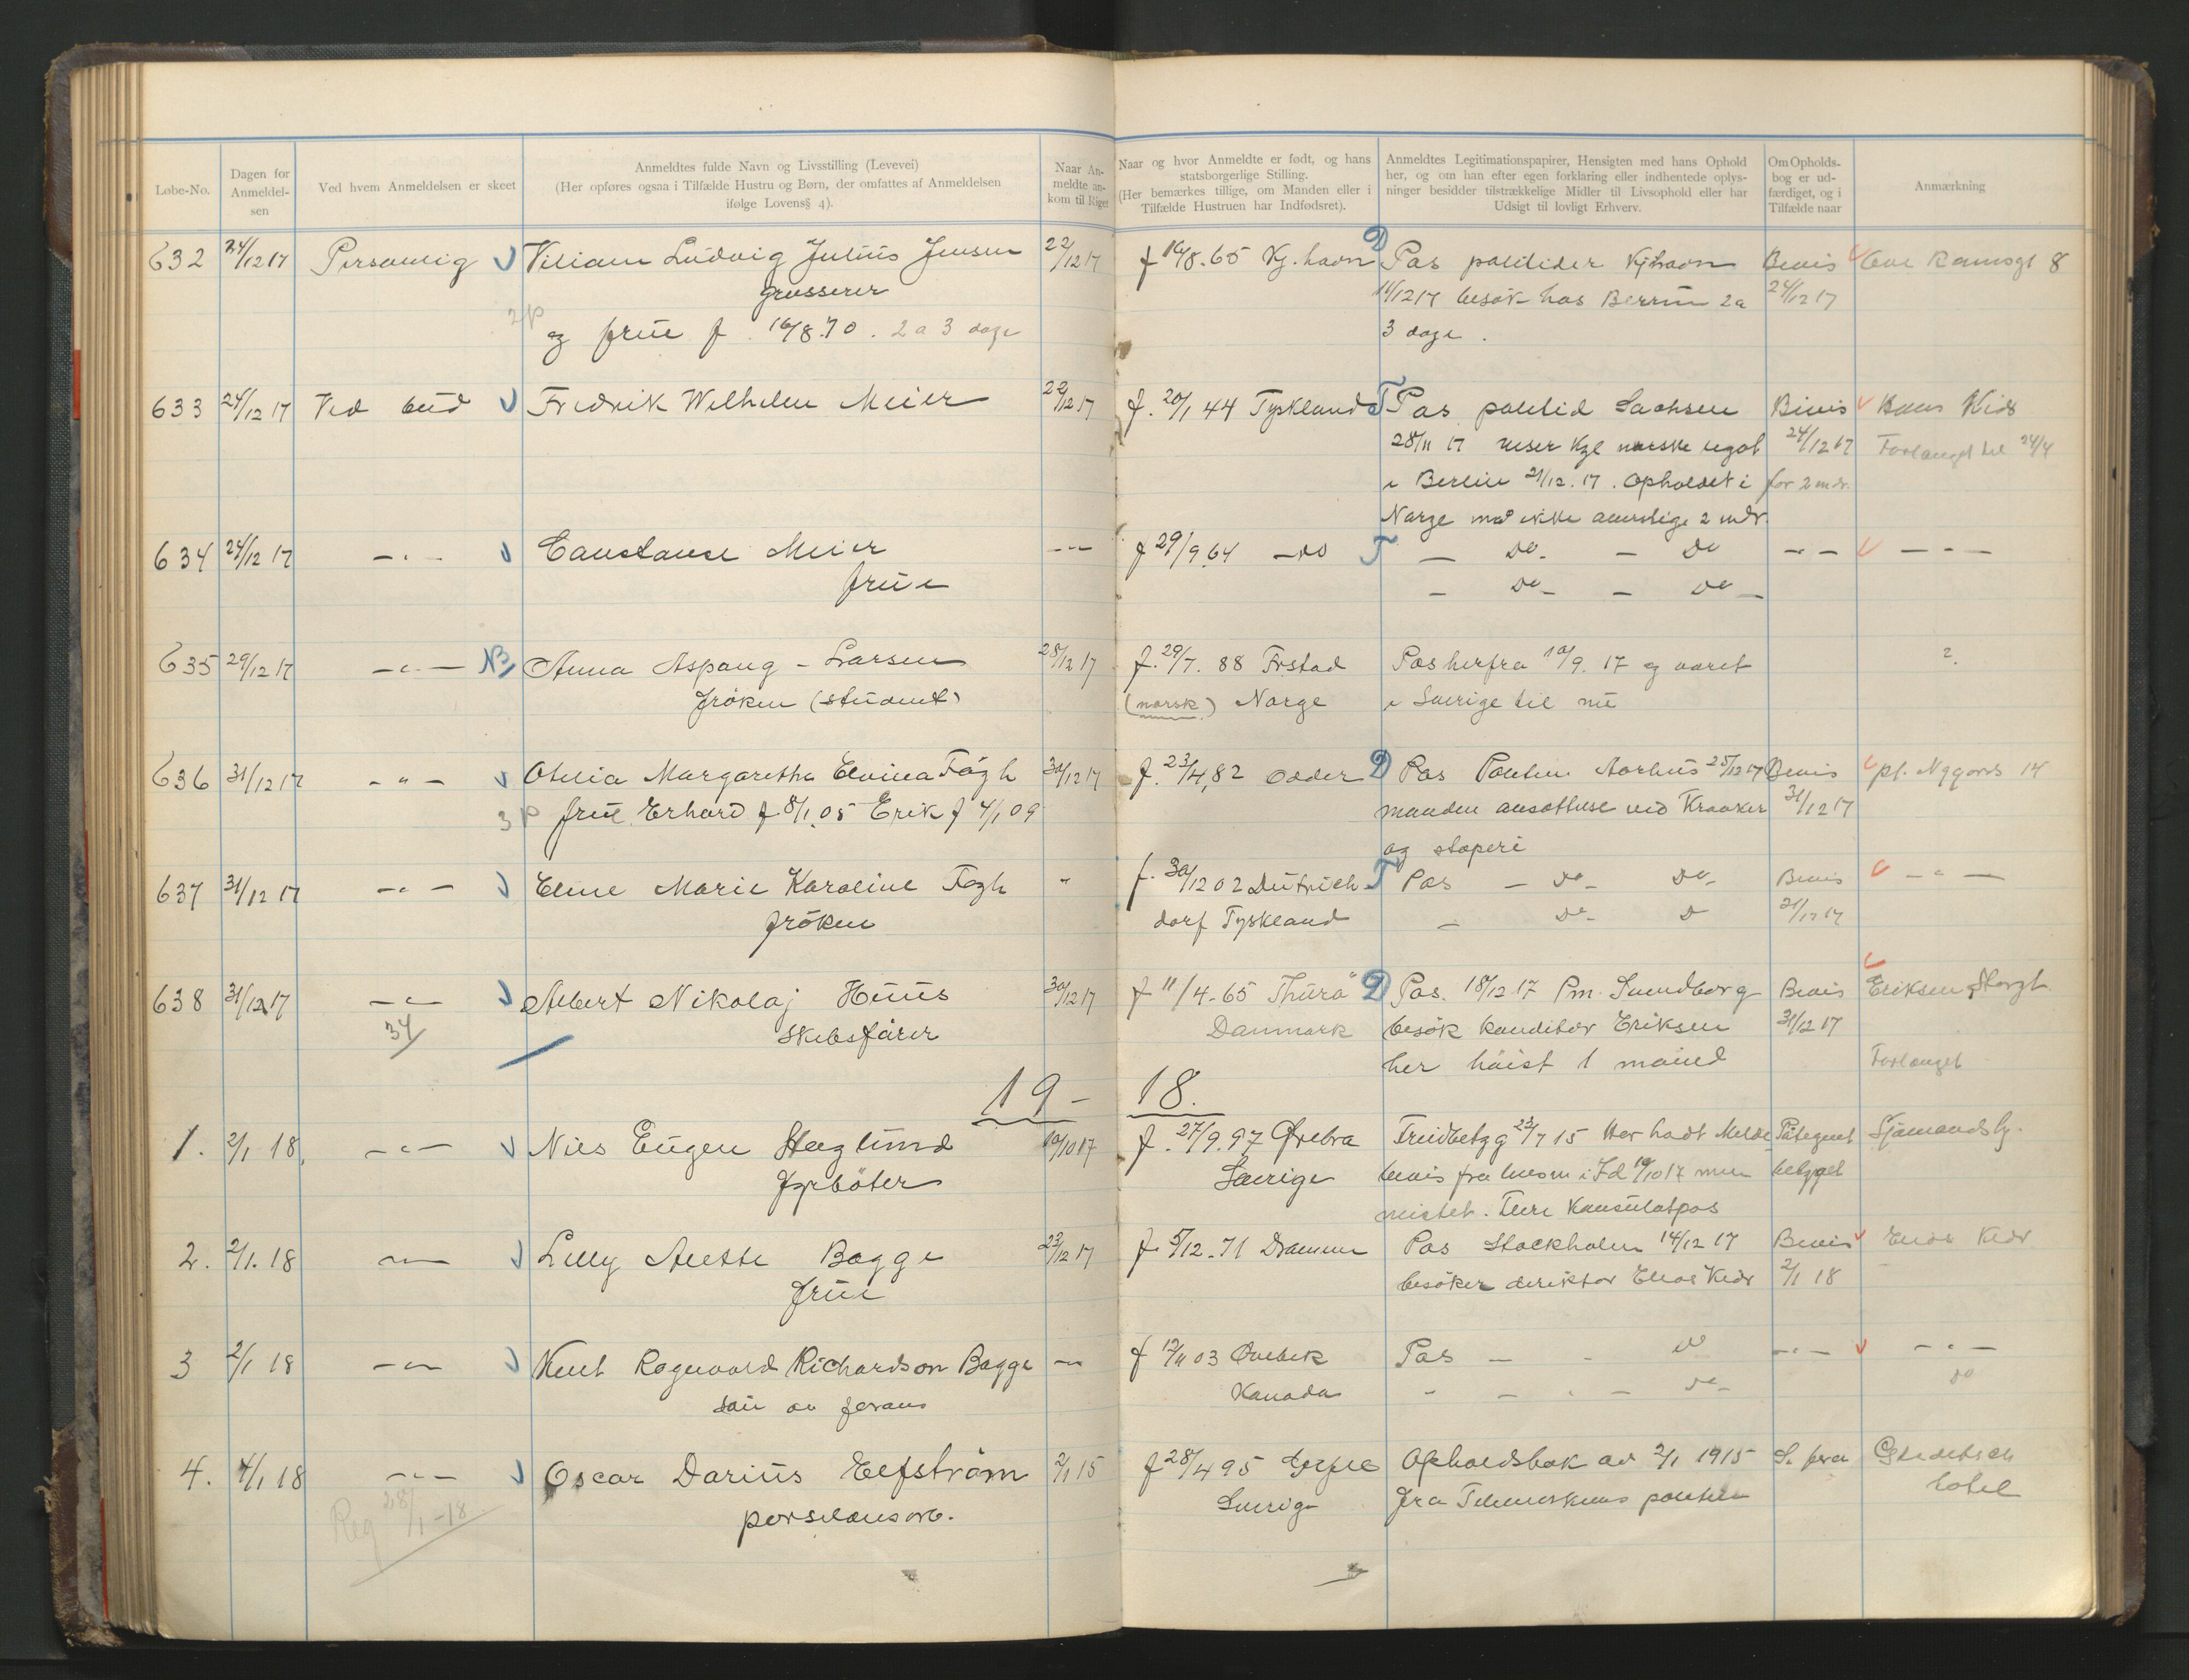 Løbe-No.
Dagen for Anmeldel-sen
Ved hvem Anmeldelsen er skeet
Anmeldtes fulde Navn og Livsstilling (Levevei)
(Her opføres ogsaa i Tilfælde Hustru og Børn, der omfattes af Anmeldelsen
ifølge Lovens § 4).
Naar An-
meldte an-
kom til Riget
Naar og hvor Anmeldte er født, og hans
statsborgerlige Stilling.
(Her bemærkes tillige, om Manden eller i
Tilfælde Hustruen har Indfødsret).
Anmeldtes Legitimationspapirer, Hensigten med hans Ophold
her, og om han efter egen forklaring eller indhentede oplys-
ninger besidder tilstrækkelige Midler til Livsophold eller har
Udsigt til lovligt Erhverv.
Om Opholds-
bog er ud-
færdiget, og i
Tilfælde naar
Anmærkning
632 24/12 17 Personlig Viliam Ludvig Julius Jensen 22/12 17 f 16/8. 65 Kj.havn D Pas politidir Kjhavn Bevis 8
grosserer 14/12 17 besøk hos Berrum 2 a 24/12 17
2p og frue f. 16/8. 70. 2 a 3 dage 3 dage.
633 24/12 17 Ved bud Fredrik Wilhelm Meier 22/12 17 f. 20/1 44 Tyskland T Pas politid Sachsen Bevis Kiær
28/11 17 viser Kgl norske legat 24/12 17 Forlænget til 24/4
i Berlin 21/12. 17. Opholdet i for 2 mdr.
Norge må ikke overstige 2 mdr.
634 24/12 17 - " - Constanse Meier - " - f 29/9 64 - do T - Do - - Do - " - - " -
frue - Do - - Do -
635 29/12 17 - " - NB Anna Aspang - Larsen 28/12 17 f. 29/7. 88 Frstad Pas herfra 10/9. 17 og været ?
Frøken (student) (norsk) Norge i Sverige til nu
636 31/12 17 - " - Otilia Margaretha Elvina Fogh 30/12 17 f. 23/4, 82 Odder D Pas Politim Aarhus 28/12 17 Bevis 14
3p frue Erhard f. 8/1 05 Erik f 4/1 09 manden ansættelse ved Kraaker 31/12 17
og støperi
637 31/12 17 - " - Eline Marie Karoline Fogh " f. 30/12 02 Dietrich- T Pas - Do - Do - Bevis - " -
frøken dorf Tyskland - Do - D 31/12 17
638 31/12 17 - " - Albert Nikolaj Huus 30/12 17 f 11/4 - 65 Thurø D Pas. 18/12 17 Pm. Svendborg Bevis Eriksen Storgt.
34 Skibsfører Danmark besøk konditor Eriksen 31/12 17
her høist 1 måned Forlænget
19 - 18.
1. 2/1 18 - " - Nils Eugen Haglund 10/10 17 f. 27/9. 97 Ørebro Fredbetyg 23/7 15 Har hadt Melde- Påtegnet Sjømandshj.
Fyrbøter Sverige bevis fra lensm i Id 10/10 17 men betyget
mistet. Konsulatpas
2. 2/1. 18 - " - Lilly Bagge 23/12 17 f. 5/12. 71 Drammen Pas Stockholm 14/12 17 Bevis Kiær
Frue besøker direktør Kiær 2/1 18
3 2/1 18 - " - Knut Ragnvald Richardson Bagge - " - f 12/11 03 Qvebek Pas - - Do - " - - " -
søn av forans Kanada " - " - Do - do
4. 4/1 18 - " - Oscar Darius Elfström 2/1 15 f 28/4 95 Gefle Opholdsbok av 2/1 1915 Se foran
porselænsarb. Sverige fra Telemarkens politim hotel
Reg 28/1 - 18